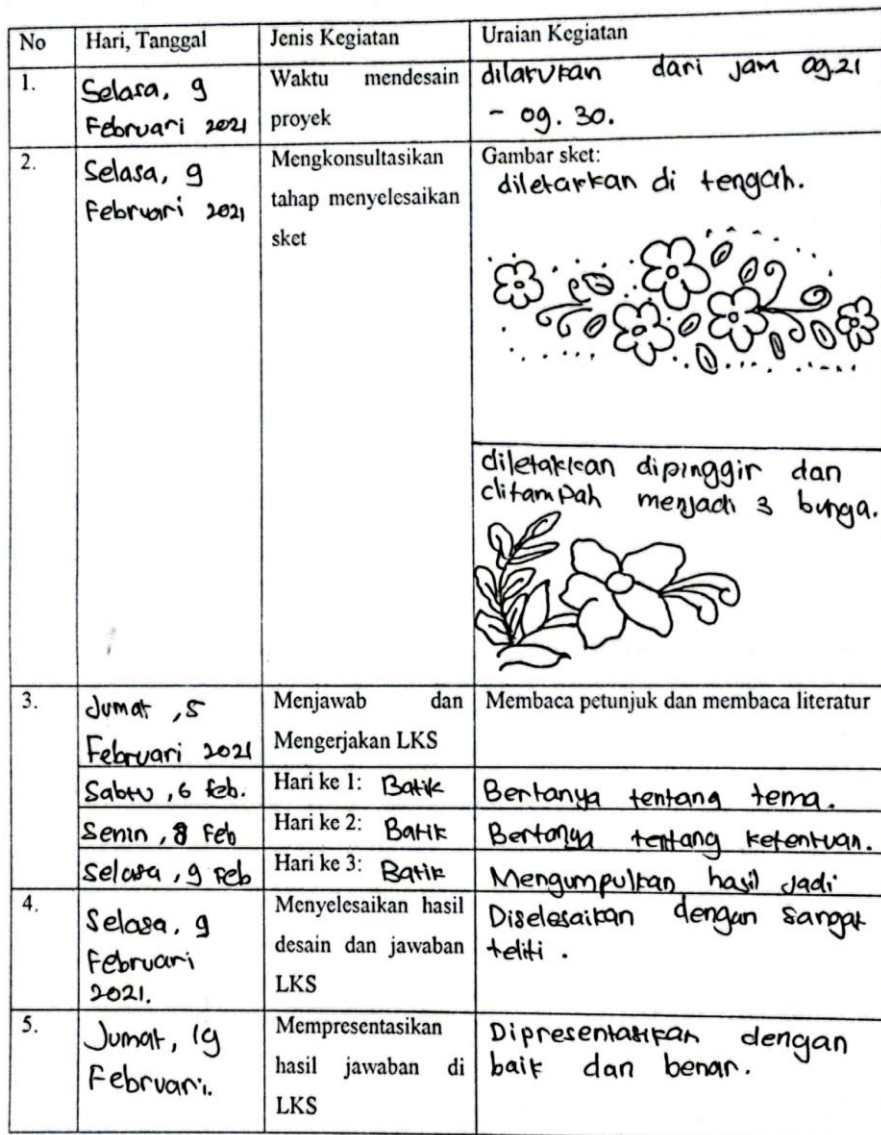 No Hari, Tanggal Jenis Kegiatan Uraian Kegiatan
1. Selasa, 9 Februari 2021
Waktu mendesain
proyek
dilakukan dari jam 09.21
- 09.30.
2. Selasa, 9
Februari 2021
Mengkonsultasikan
tahap menyelesaikan
sket
Gambar sket:
diletakkan di tengah.
diletakkan dipinggir dan
ditampah menjadi 3 bunga.
3. Jumat, 5
Februari 2021
Menjawab dan
Mengerjakan LKS
Membaca petunjuk dan membaca literatur
Sabtu, 6 feb. Hari ke 1: Batik Bertanya tentang tema.
Senin, 8 Feb Hari ke 2: Batik Bertanya tentang ketentuan.
Selasa, 9 Feb Hari ke 3: Batik Mengumpulkan hasil jadi
4. Selasa, 9
Februari
2021.
Menyelesaikan hasil
desain dan jawaban
LKS
Diselesaikan dengan sangat
teliti.
5. Jumat, 19
Februari.
Mempresentasikan
hasil jawaban di
LKS
Dipresentasikan dengan
baik dan benar.